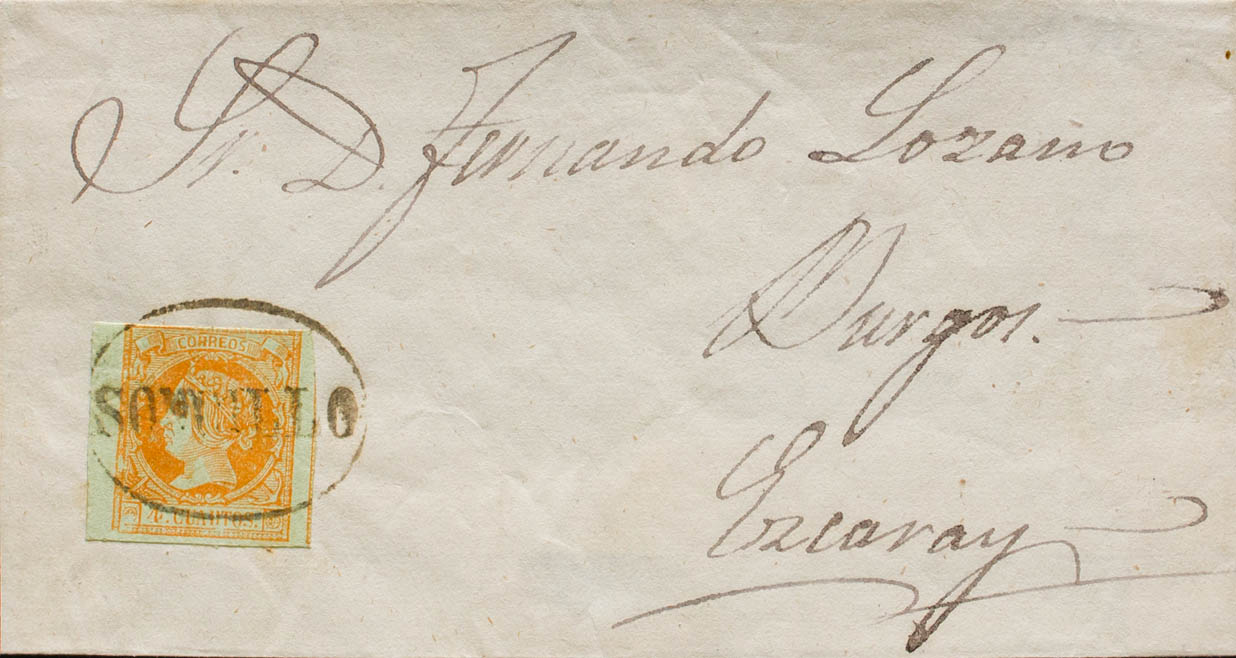 Sr. D. Fernando Lozano
Burgos.
Ezcaray
CORREOS
SONCILLO
4. CUARTOS.